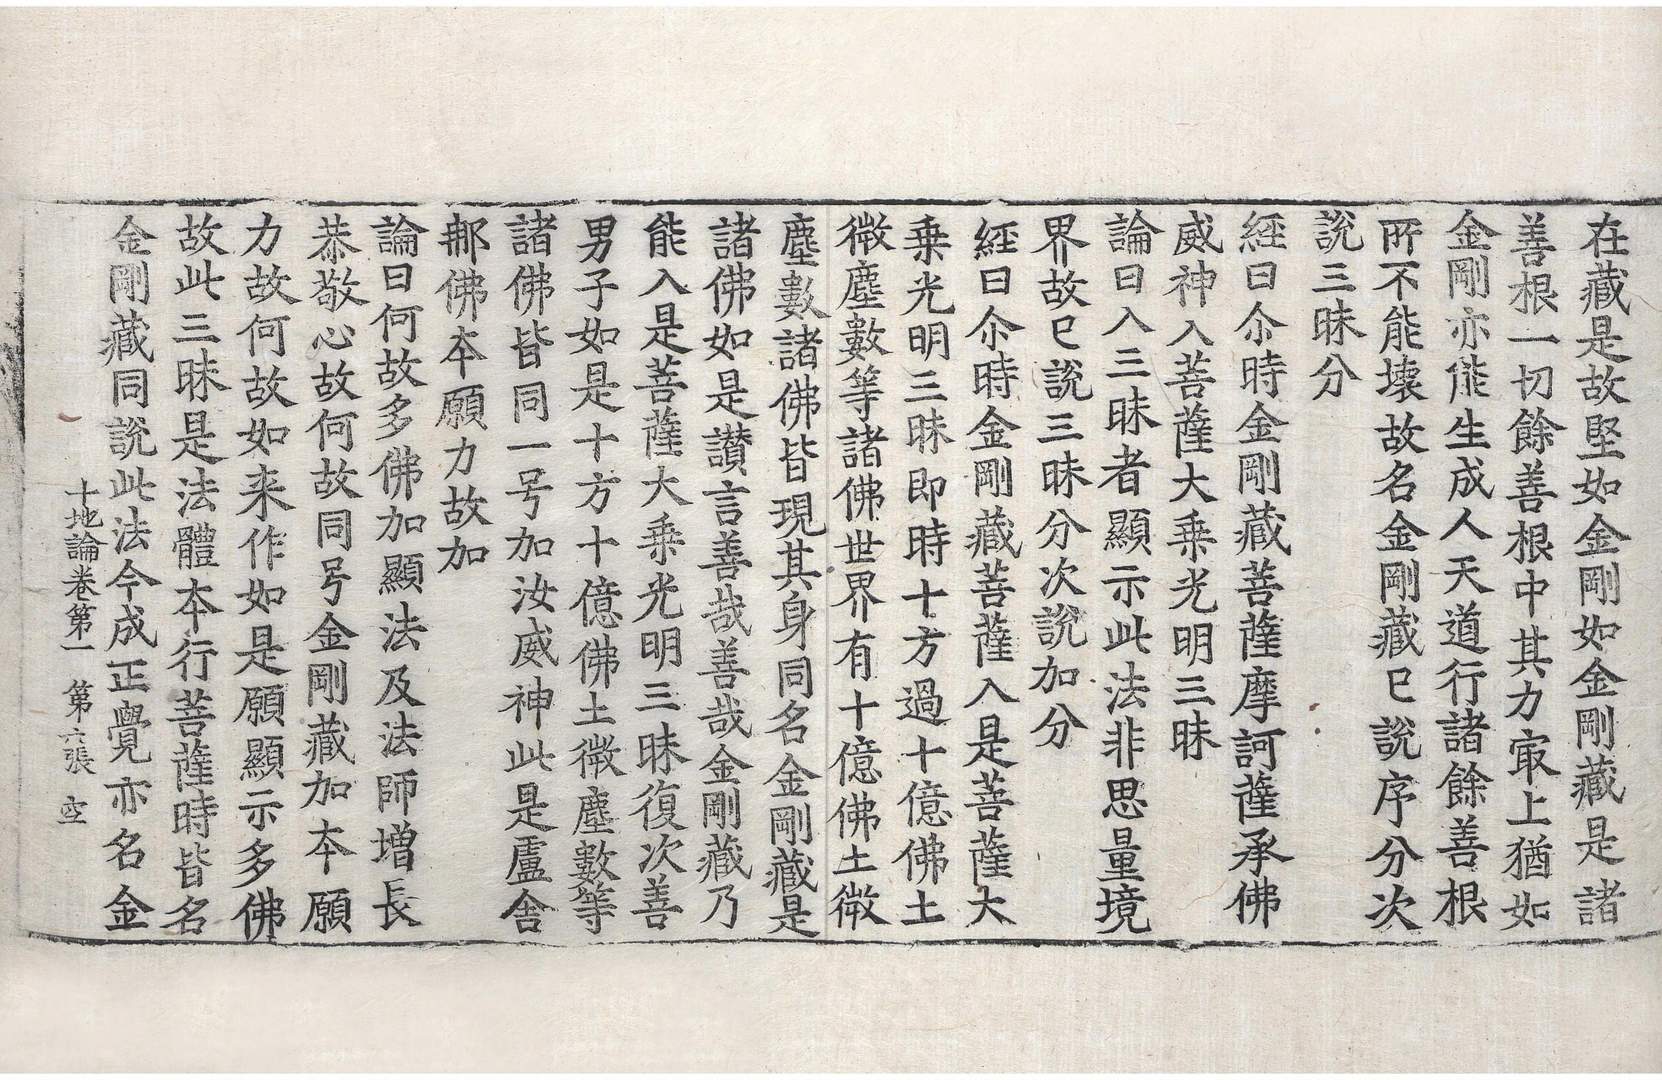 在藏是故堅如金剛如金剛藏是諸
善根一切餘善根中其力㝡上猶如
金剛亦能生成人天道行諸餘善根
所不能壞故名金剛藏已說序分次
說三昧分
經曰尒時金剛藏菩薩摩訶薩承佛
威神入菩薩大乗光明三昧
論曰入三昧者顯示此法非思量境
界故已說三昧分次說加分
經曰尒時金剛藏菩薩入是菩薩大
乗光明三昧即時十方過十億佛土
微塵數等諸佛世界有十億佛土微
塵數諸佛皆現其身同名金剛藏是
諸佛如是讃言善哉善哉金剛藏乃
能入是菩薩大乗光明三昧復次善
男子如是十方十億佛土微塵數等
諸佛皆同一号加汝威神此是盧舍
那佛夲願力故加
論曰何故多佛加顯法及法師增長
恭敬心故何故同号金剛藏加夲願
力故何故如来作如是願顯示多佛
故此三昧是法體夲行菩薩時皆名
金剛藏同說此法今成正覺亦名金
十地論卷第一　第六張　空